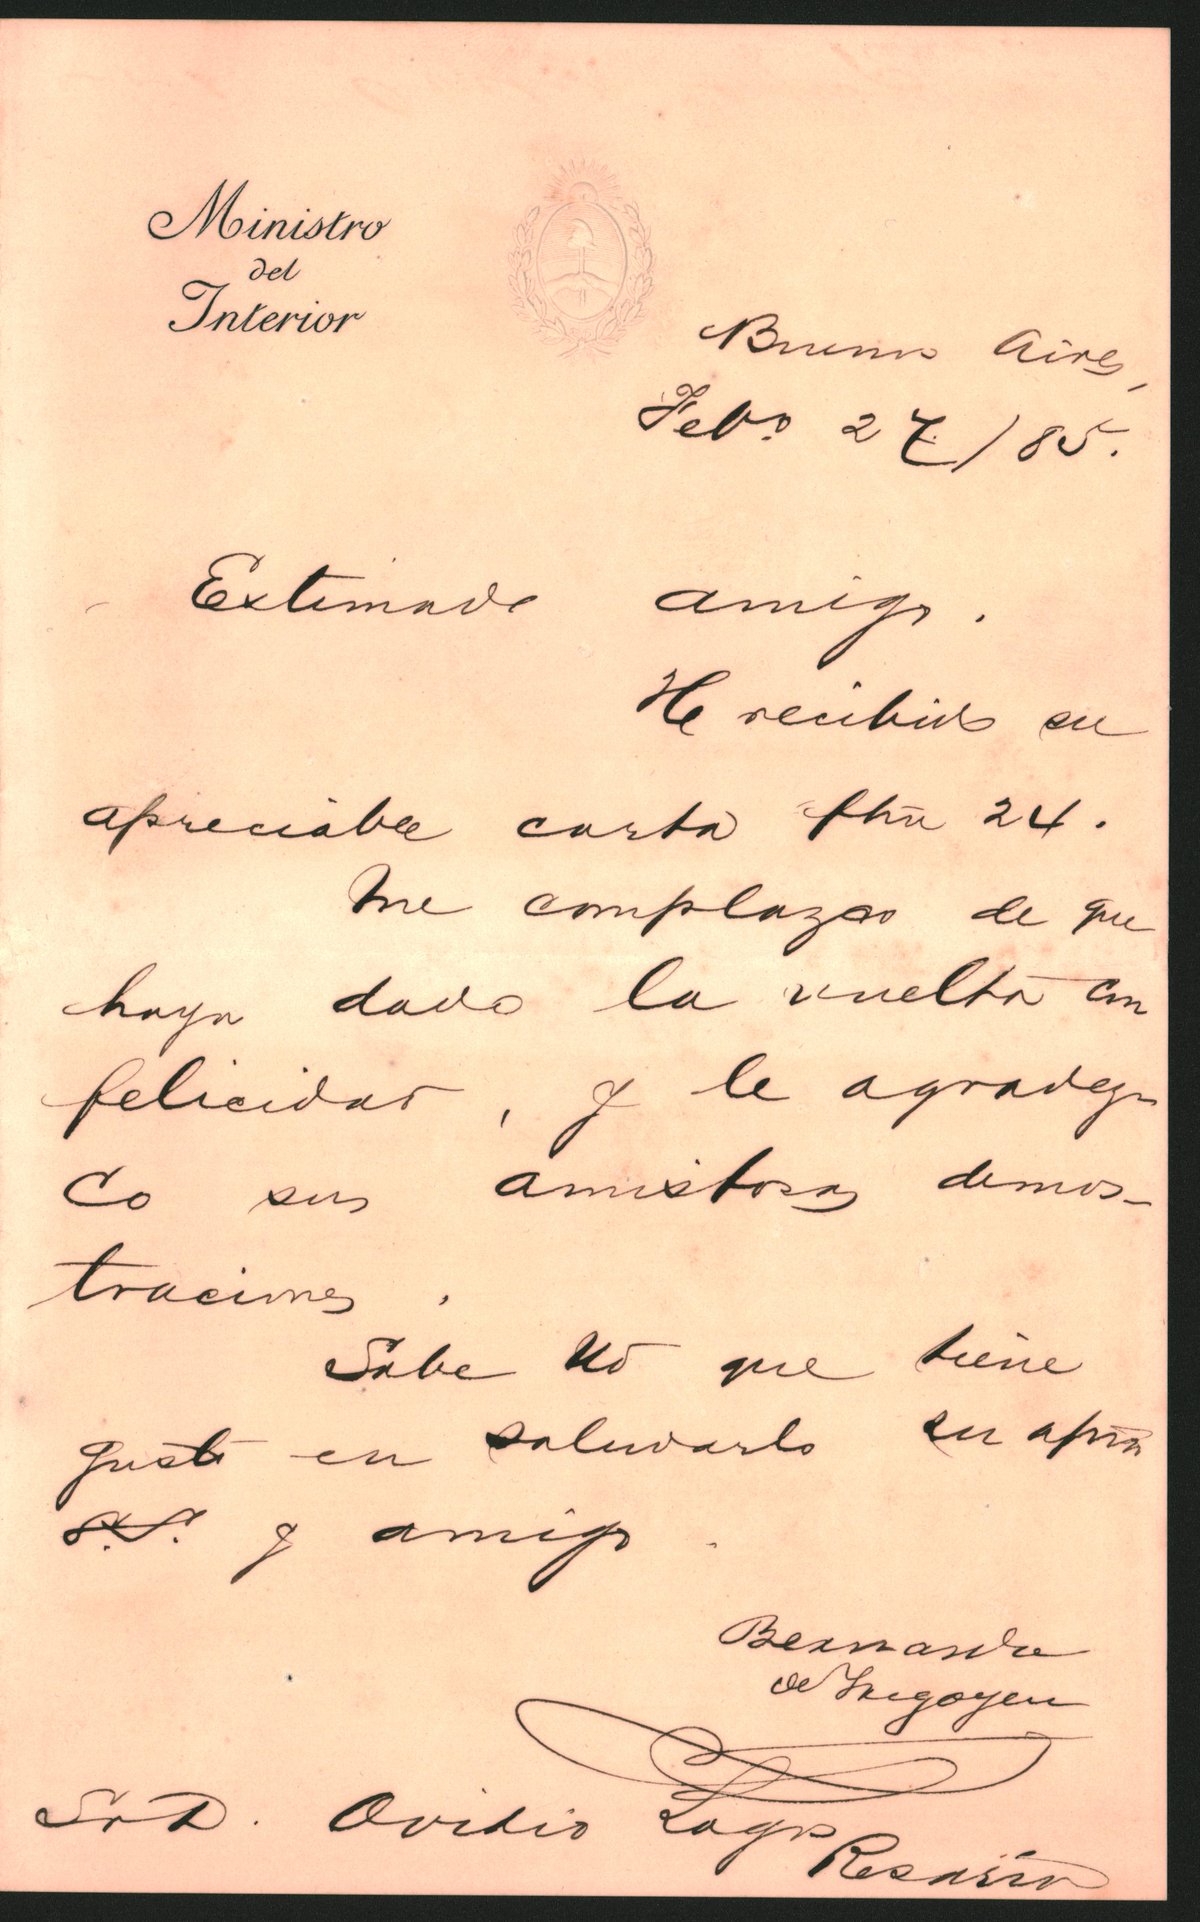 Ministro
del
Interior
Buenos Aires,
Febo. 27/85.
Estimado amigo.
He recibido su
apreciable carta fha 24.
Me complazco de que
haya dado la vuelta con
felicidad, y le agradez-
co sus amistosas demos-
traciones.
Sabe Ud que tiene
gusto en saludarlo su apmo
S.S. y amigo.
Bernardo
de Irigoyen
Sr D. Ovidio Lagos
Rosario